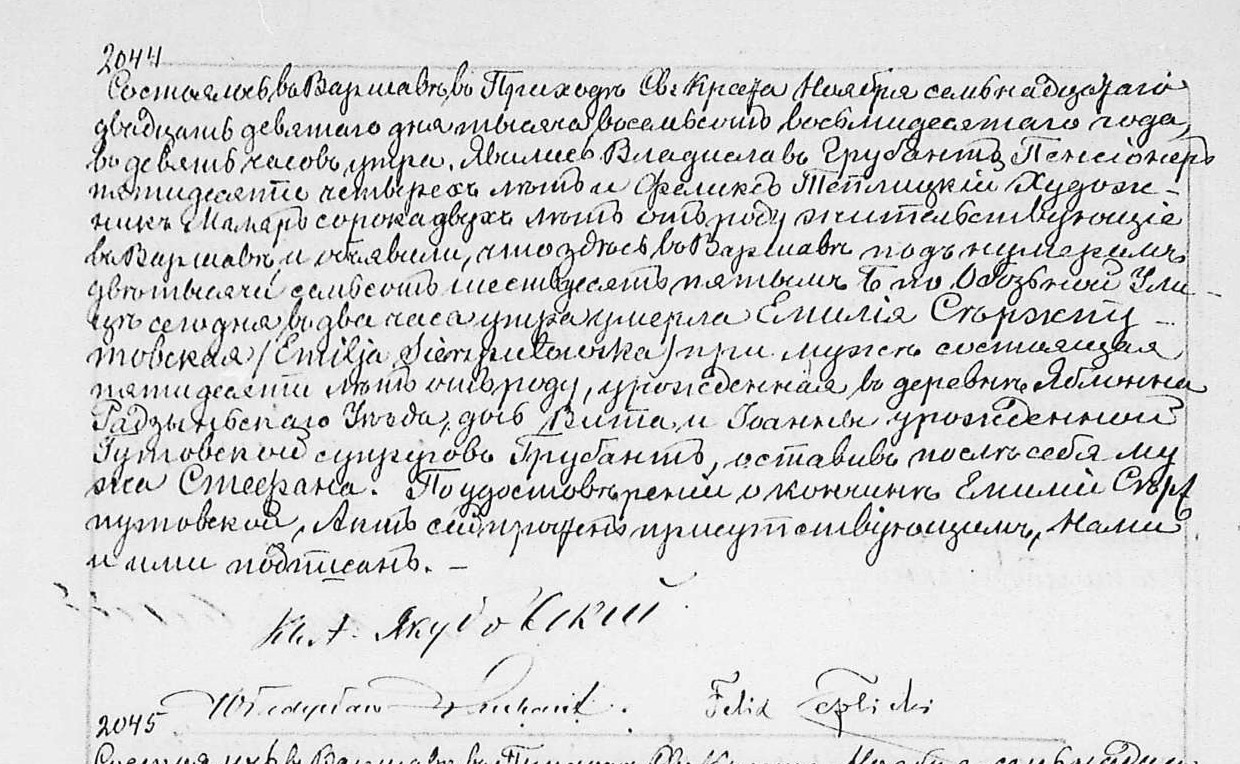 2044
Состоялось въ Варшавѣ, въ Приходѣ Св. Креста Ноября семьнадцатаго
двадцать девятаго дня тысяча восемьсотъ восемьдесятаго года,
въ девять часовъ утра. Явились Владиславъ Грубантъ Пенсіонеръ
пятидесяти четырехъ лѣтъ и Феликсъ Теплицкій Худож-
никъ Маляръ сорока двухъ лѣтъ отъ роду жительствующіе
въ Варшавѣ, и объявили, что здѣсь въ Варшавѣ подъ нумеромъ
двѣ тысячи семьсотъ шестьдесятъ пятымъ Б по Обозьной Ули-
цѣ сегодня въ два часа утра умерла Емилія Сѣржпу-
товская /Emilja Sierzputowska/ при мужѣ состоящая
пятидесяти лѣтъ отъ роду, урожденная въ деревнѣ Яблонна
Радзыньскаго Уѣзда, дочь Вита и Іоанны урожденной
Гутовской супруговъ Грубантъ, оставивъ послѣ себя му
жа Стефана. По удостовѣреніи о кончинѣ Емиліи Сѣрж
путовской, Актъ сей прочтенъ присутствующимъ, Нами
и ими подписанъ. —
Кс. А. Якубовскій
Władysław Grubant. Felix Teplicki
2045
Состоялось въ Варшавѣ, въ Приходѣ Св. Креста Ноября семьнадцат